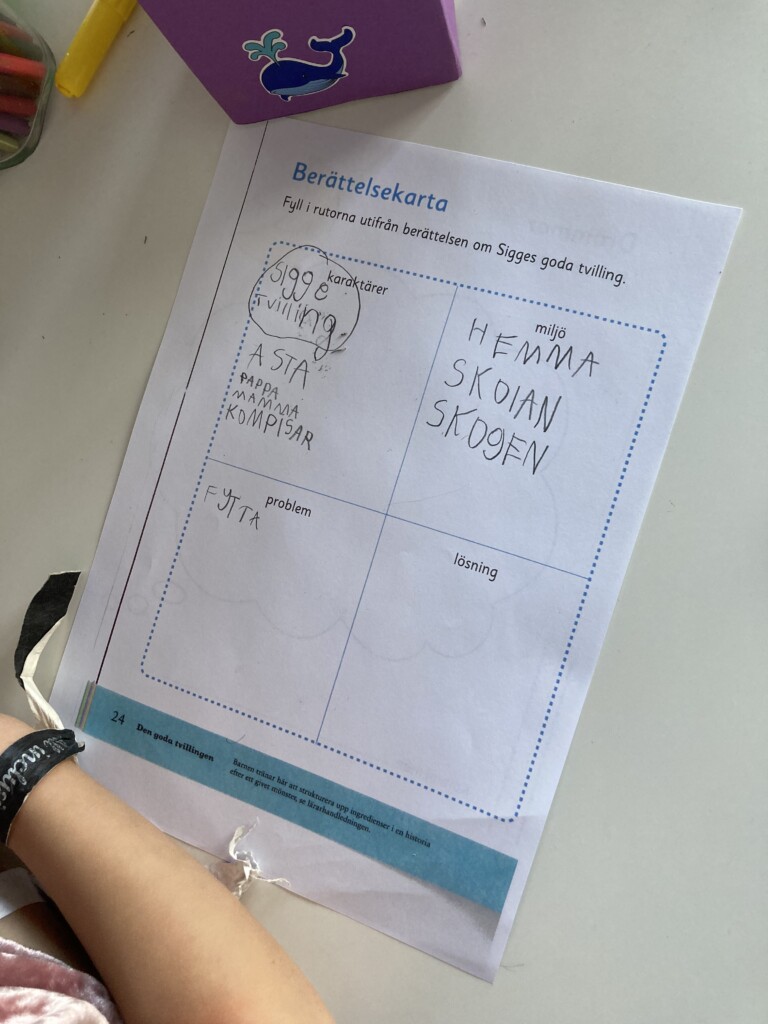 Berättelsekarta
Fyll i rutorna utifrån berättelsen om Sigges goda tvilling.
karaktärer
Sigge
Tvilling
ASTA
PAPPA
MAMMA
KOMPISAR
miljö
HEMMA
SKOIAN
SKOgEN
problem
FYTTA
lösning
24 Den goda tvillingen
Barnen tränar här att strukturera upp ingredienser i en historia
efter ett givet mönster, se lärarhandledningen.
all inclus